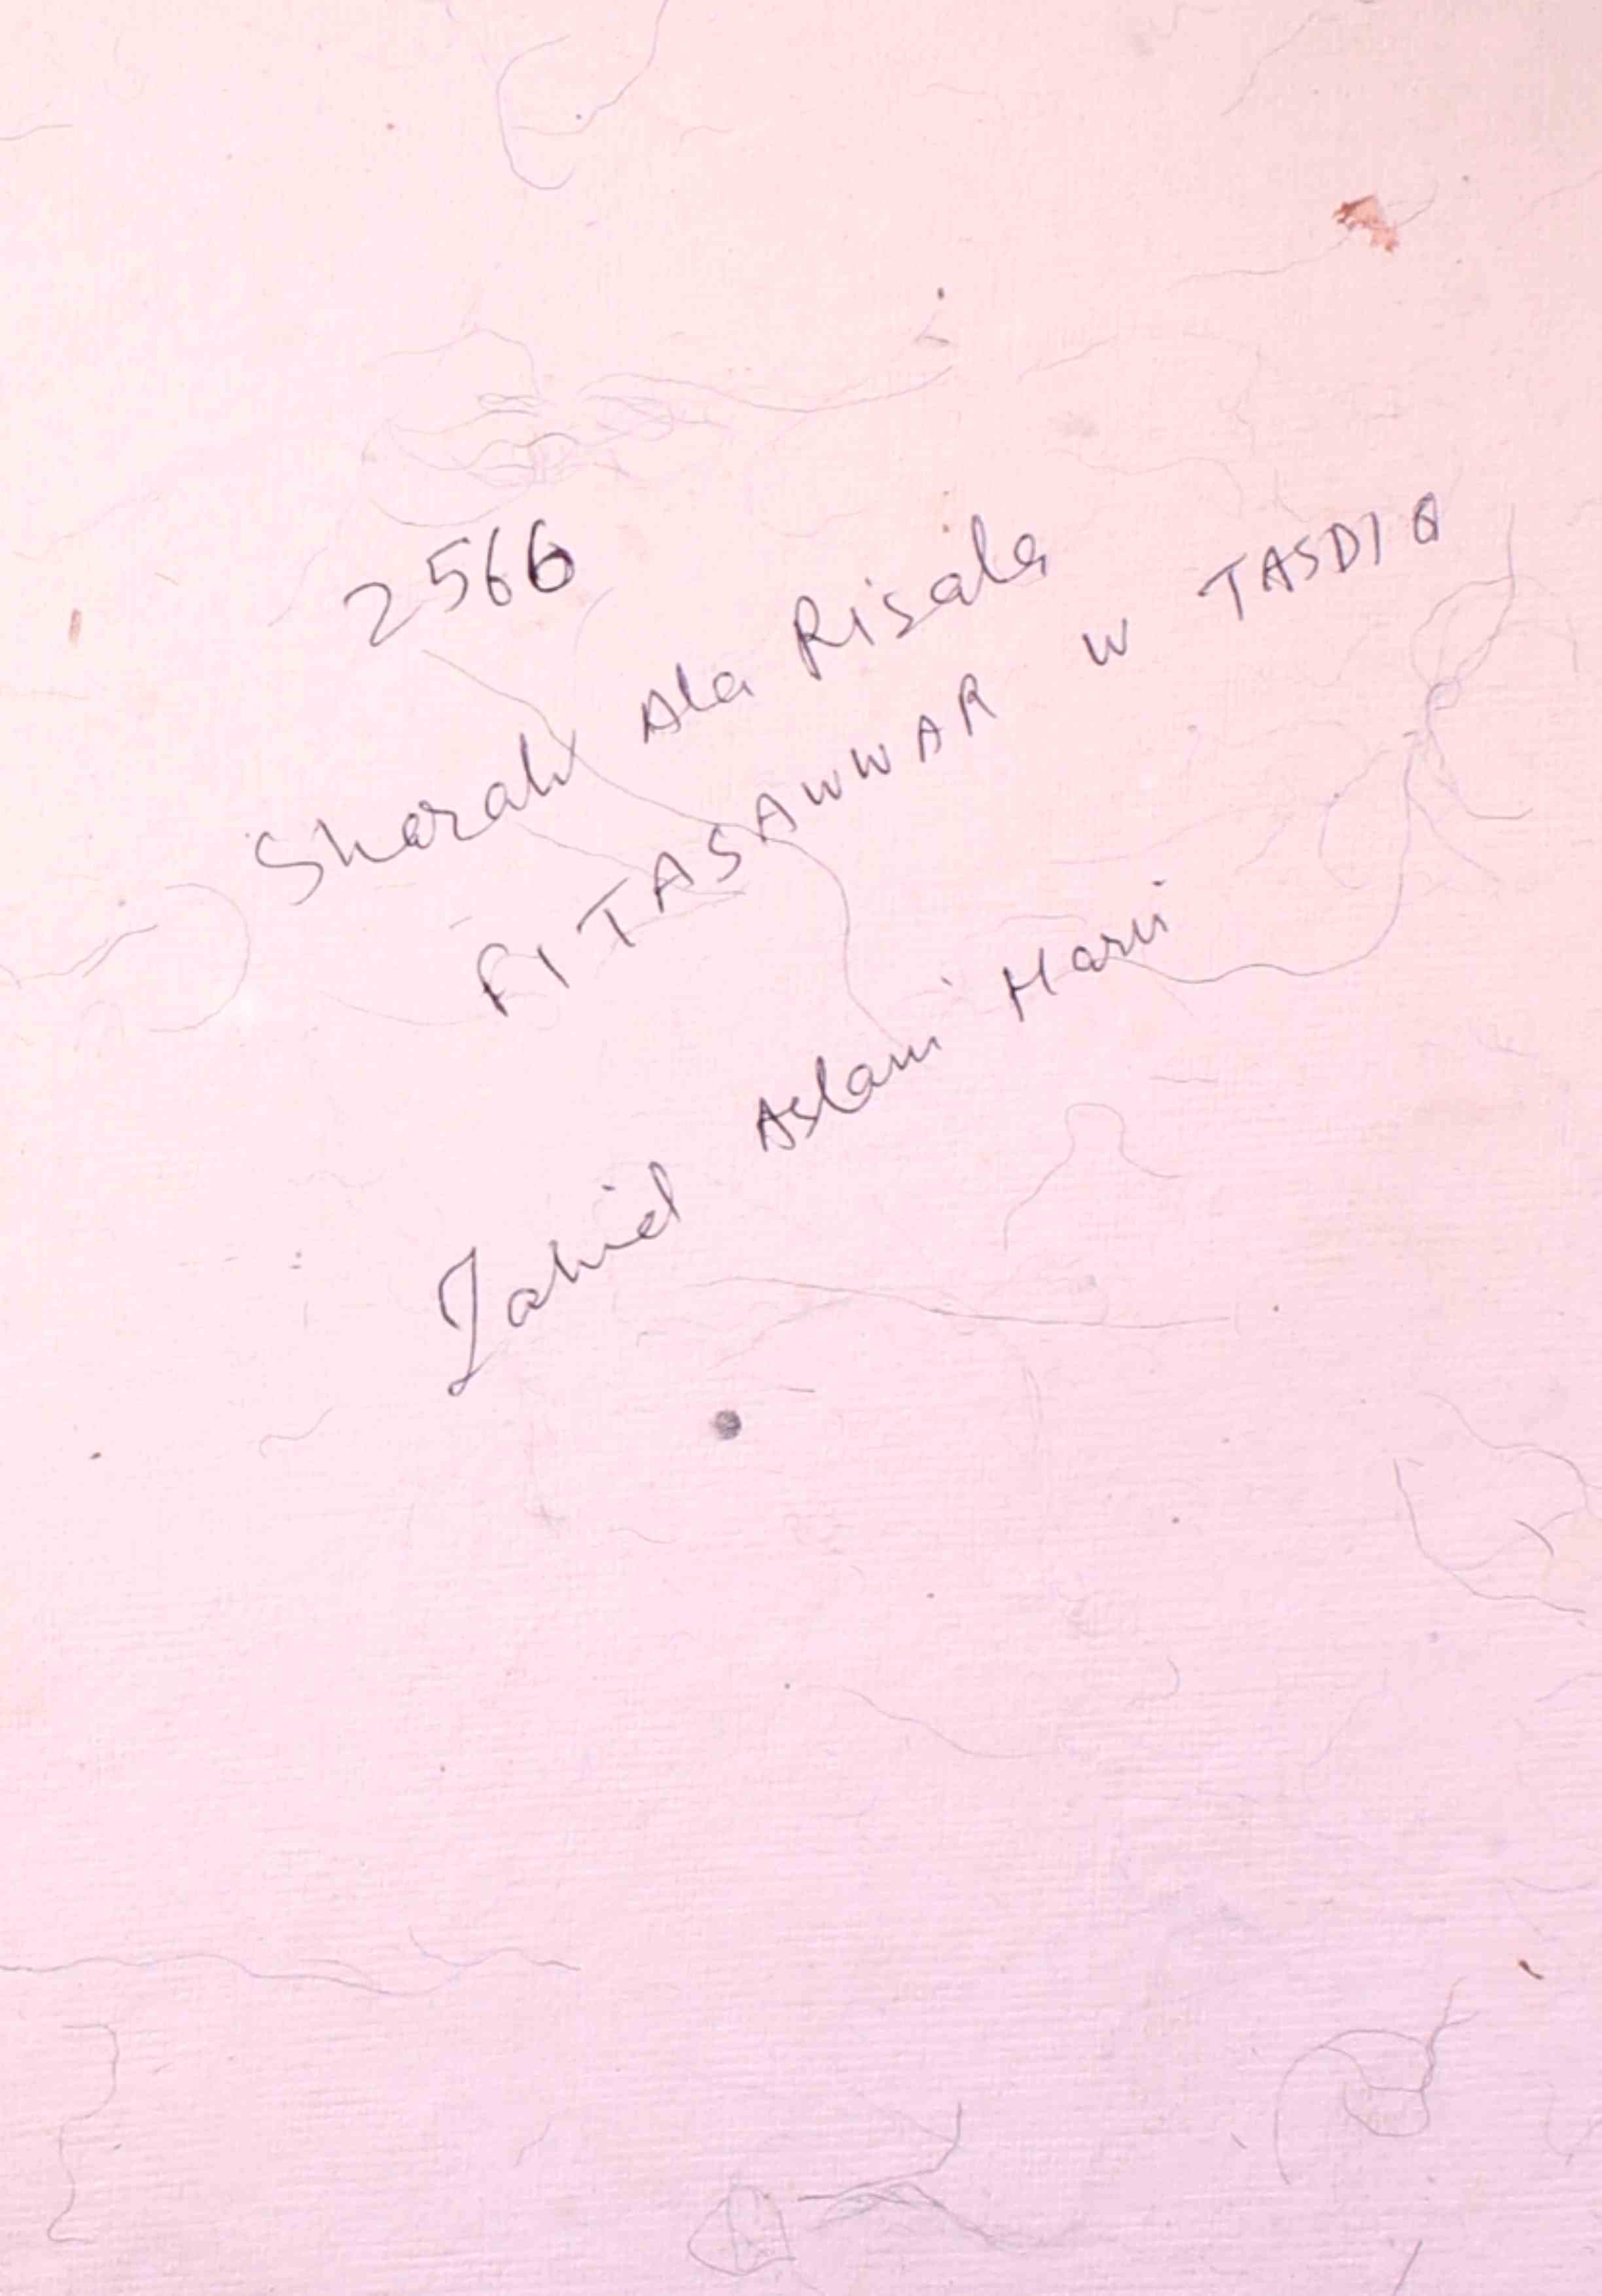 2566
Sharah Ala Risala
FI TASAWWAR W TASDIQ
Zahid Aslam Harvi